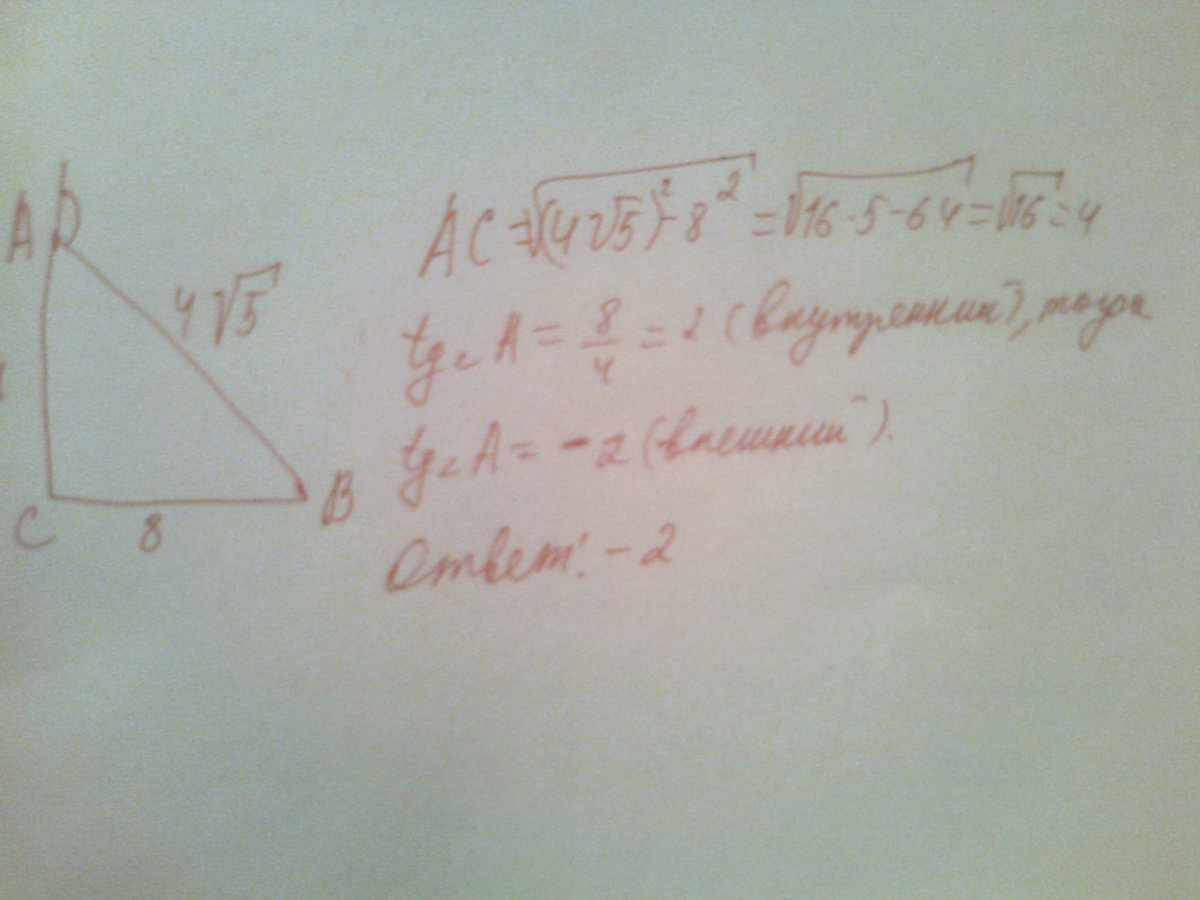 A
4√5
C
8
B
AC = √((4√5)² - 8²) = √(16·5-64) = √16 = 4
tg∠A = 8/4 = 2 (внутренний), тогда
tg∠A = -2 (внешний).
Ответ: -2